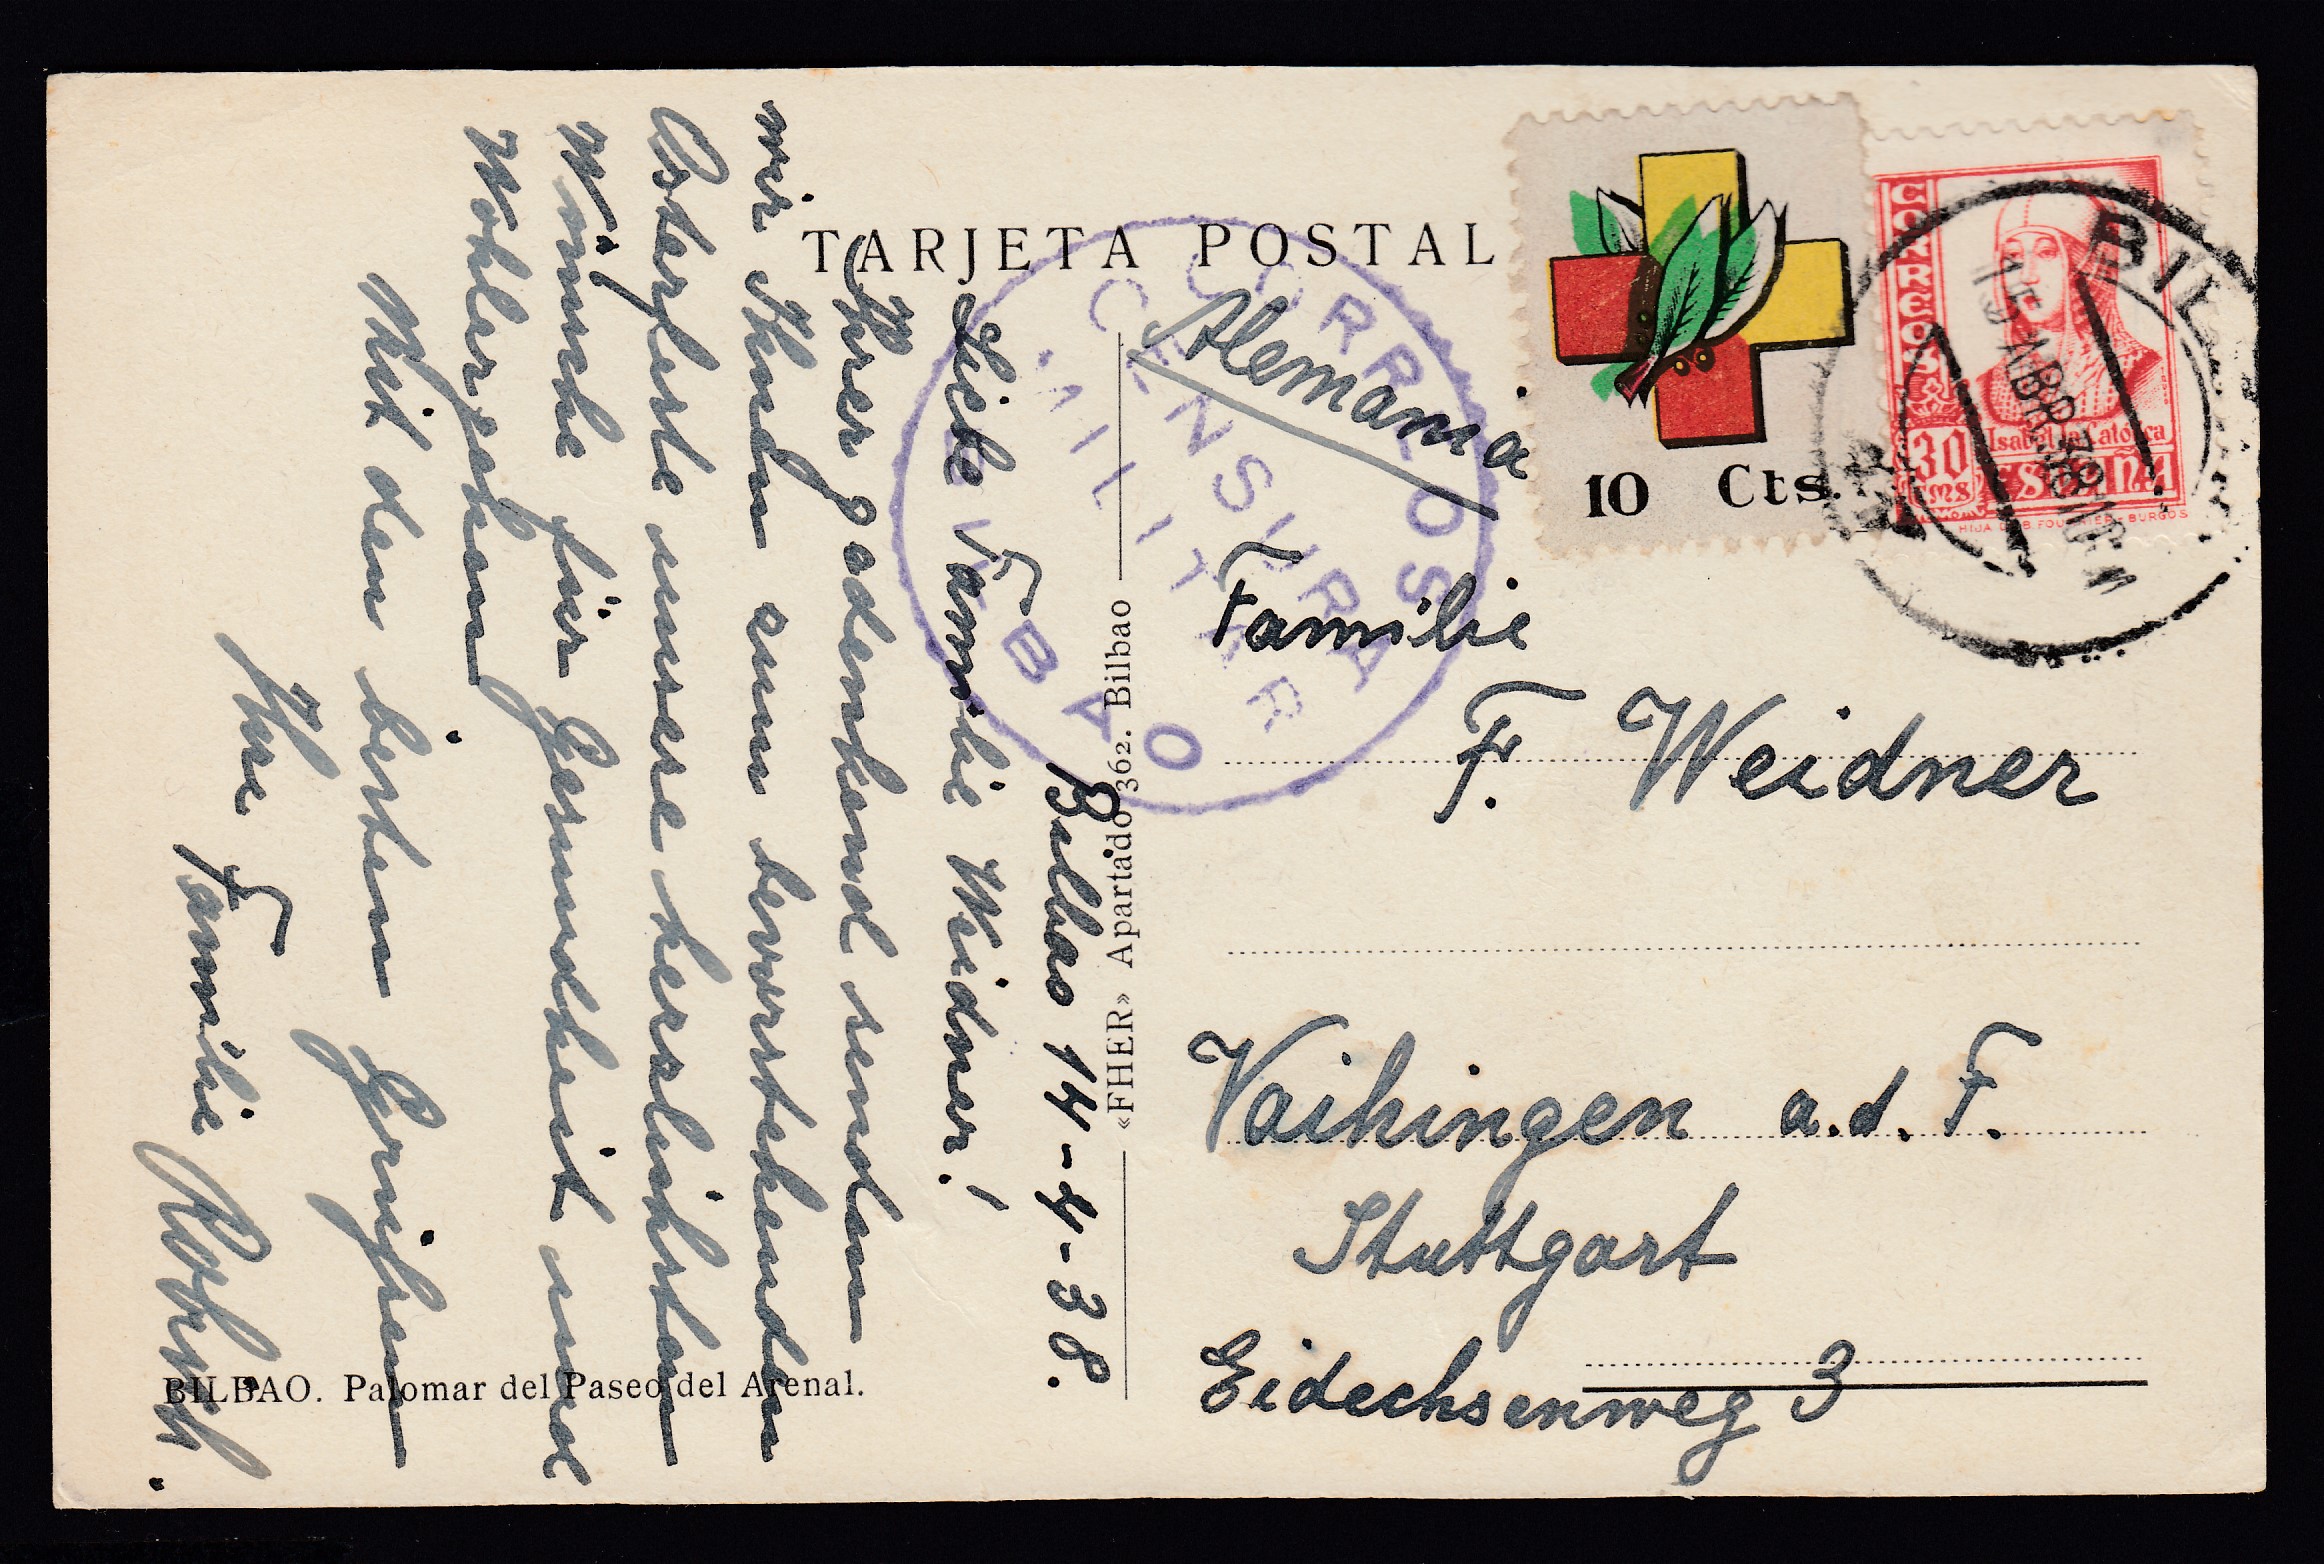 TARJETA POSTAL
CORREOS
CENSURA
MILITAR
BILBAO
10 Cts.
CORREOS
30
CTMS
Isabel la Católica
ESPAÑA
HIJA DE B. FOURNIER - BURGOS
BIL
15 ABR 38
Alemania
Familie
F. Weidner
Vaihingen a.d. F.
Stuttgart
Eidechsenweg 3
«FHER» Apartado 362. Bilbao
Bilbao 14-4-38.
Liebe Familie Weidner!
Ihrer gedenkend senden
wir Ihnen zum bevorstehenden
Osterfeste unsere herzlichsten
Wünsche für Gesundheit und
Wohlergehen.
Mit den besten Grüssen
Ihre
Familie
BILBAO. Palomar del Paseo del Arenal.